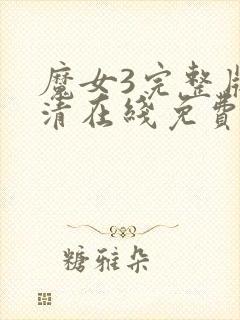 魔女3完整版
清在綫免費
糖雅朵